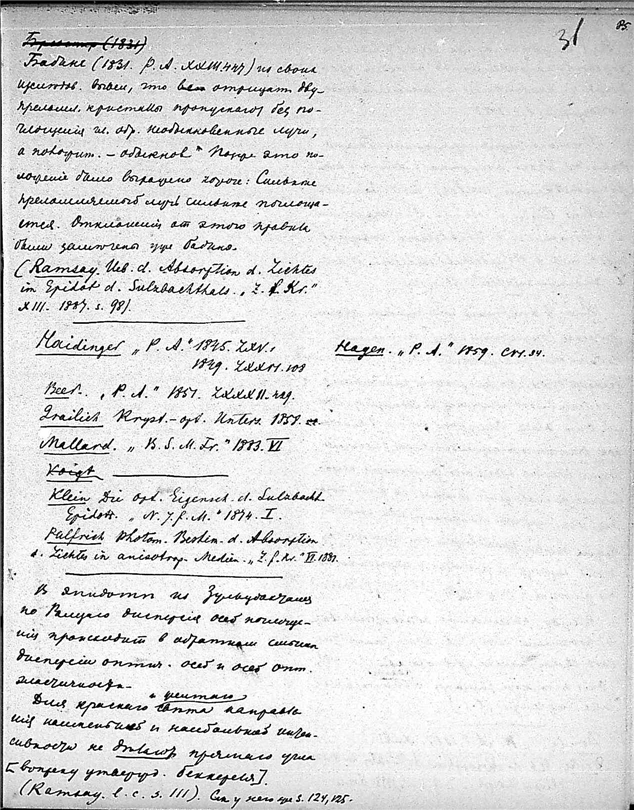 31
85.
Брюстер (1831)
Бабине (1831. P. A. XXIII. 447) из своих
, что отрицат. дву-
преломл. кристаллы пропускают без по-
глощенія гл. обр. необыкновенные лучи,
а положит. – обыкнов. Позже это по-
ложеніе было выражено короче: Сильнѣе
преломляемый лучъ сильнѣе поглоща-
ется. Отклоненія от этого правила
были замѣчены уже Бабине.
(Ramsay. Ueb. d. Absorption d. Lichtes
im Epidot d. Sulzbachthals. „Z. f. Kr."
XIII. 1887. s. 98).
Haidinger „P. A." 1845. LXV. 1
1849. LXXVI. 108
Hagen. „P. A." 1859. CVI. 34.
Beer. „P. A." 1851. LXXXII. 429.
Grailich Kryst.-opt. Unters. 1858.
Mallard. „B. S. M. Fr." 1883. VI
Voigt
Klein Die opt. Eigensch. d. Sulzbach.
Epidot. „N. J. f. M." 1874. I.
Pulfrich Photom. Bestim. d. Absorption
d. Lichtes in anisotrop. Medien. „Z. f. Kr." VI. 1881.
В эпидотѣ из Зульцбахталя
по Рамзаю дисперсія осей поглоще-
нія происходит в обратном смыслѣ
дисперсіи оптич. осей и осей опт.
эластичности.
Для краснаго и желтаго свѣта направле-
нія наименьшей и наибольшей интен-
сивности не дѣлают прямого угла
[вопреки утвержд. Беккереля].
(Ramsay. l. c. s. 111). См. у него еще s. 124, 125.